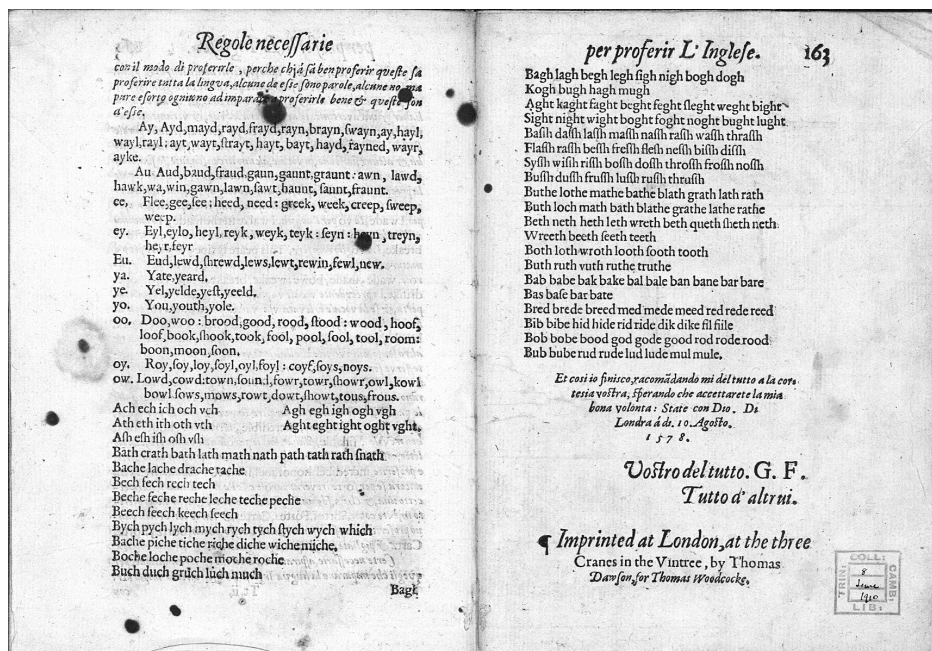 Regole necessarie
con il modo di proferirle, perche chi sà ben proferir queste sa
proferire tutta la lingua, alcune de esse sono parole, alcune no, ma
pare esorto ogniuno ad imparar a proferirle bene & queste son
d'esse.
Ay, Ayd, mayd, rayd, frayd, rayn, brayn, swayn, ay, hayl,
wayl, rayl: ayt, wayt, strayt, hayt, bayt, hayd, rayned, wayr,
ayke.
Au Aud, baud, fraud, gaun, gaunt, graunt: awn, lawd,
hawk, wa, win, gawn, lawn, sawt, haunt, saunt, fraunt.
ee, Flee, gee, see: heed, need: greek, week, creep, sweep,
weep.
ey. Eyl, eylo, heyl, reyk, weyk, teyk: seyn: heyn, treyn,
heyr, feyr
Eu. Eud, lewd, shrewd, lews, lewt, rewin, fewl, new.
ya. Yate, yeard.
ye. Yel, yelde, yest, yeeld.
yo. You, youth, yole.
oo, Doo, woo: brood, good, rood, stood: wood, hoof,
loof, book, shook, took, fool, pool, sool, tool, room:
boon, moon, soon.
oy. Roy, soy, loy, soyl, oyl, foyl: coyf, soys, noys.
ow. Lowd, cowd: town, sound, fowr, towr, showr, owl, kowl
bowl sows, mows, rowt, dowt, showt, tous, frous.
Ach ech ich och vch Agh egh igh ogh vgh
Ath eth ith oth vth Aght eght ight oght vght.
Ash esh ish osh vsh
Bath crath bath lath math nath path tath rath snath
Bache lache drache tache
Bech sech rech tech
Beche seche reche leche teche peche
Beech seech keech seech
Bych pych lych mych rych tych stych wych which
Bache piche tiche riche diche wiche miche.
Boche loche poche moche roche
Buch duch gruch luch much
Bagh
per proferir L'Inglese. 163
Bagh lagh begh legh sigh nigh bogh dogh
Kogh bugh hagh mugh
Aght kaght faght beght feght sleght weght bight
Sight night wight boght foght noght bught lught
Bash dash lash mash nash rash wash thrash
Flash rash besh fresh flesh nesh bish dish
Sysh wish rish bosh dosh throsh frosh nosh
Bush dush frush lush rush thrush
Buthe lothe mathe bathe blath grath lath rath
Buth loch math bath blathe grathe lathe rathe
Beth neth heth leth wreth beth queth sheth neth
Wreeth beeth seeth teeth
Both loth wroth looth sooth tooth
Buth ruth vuth ruthe truthe
Bab babe bak bake bal bale ban bane bar bare
Bas base bar bate
Bred brede breed med mede meed red rede reed
Bib bibe hid hide rid ride dik dike fil fiile
Bob bobe bood god gode good rod rode rood
Bub bube rud rude lud lude mul mule.
Et cosi io finisco, racomãdando mi del tutto a la cor
tesia vostra, sperando che accettarete la mia
bona volonta: State con Dio. Di
Londra á di. 10. Agosto.
1578.
Vostro del tutto. G. F.
Tutto d'altrui.
¶ Imprinted at London, at the three
Cranes in the Vintree, by Thomas
Dawson, for Thomas Woodcocke.
TRIN: COLL: CAMB: LIB:
8
June
1910